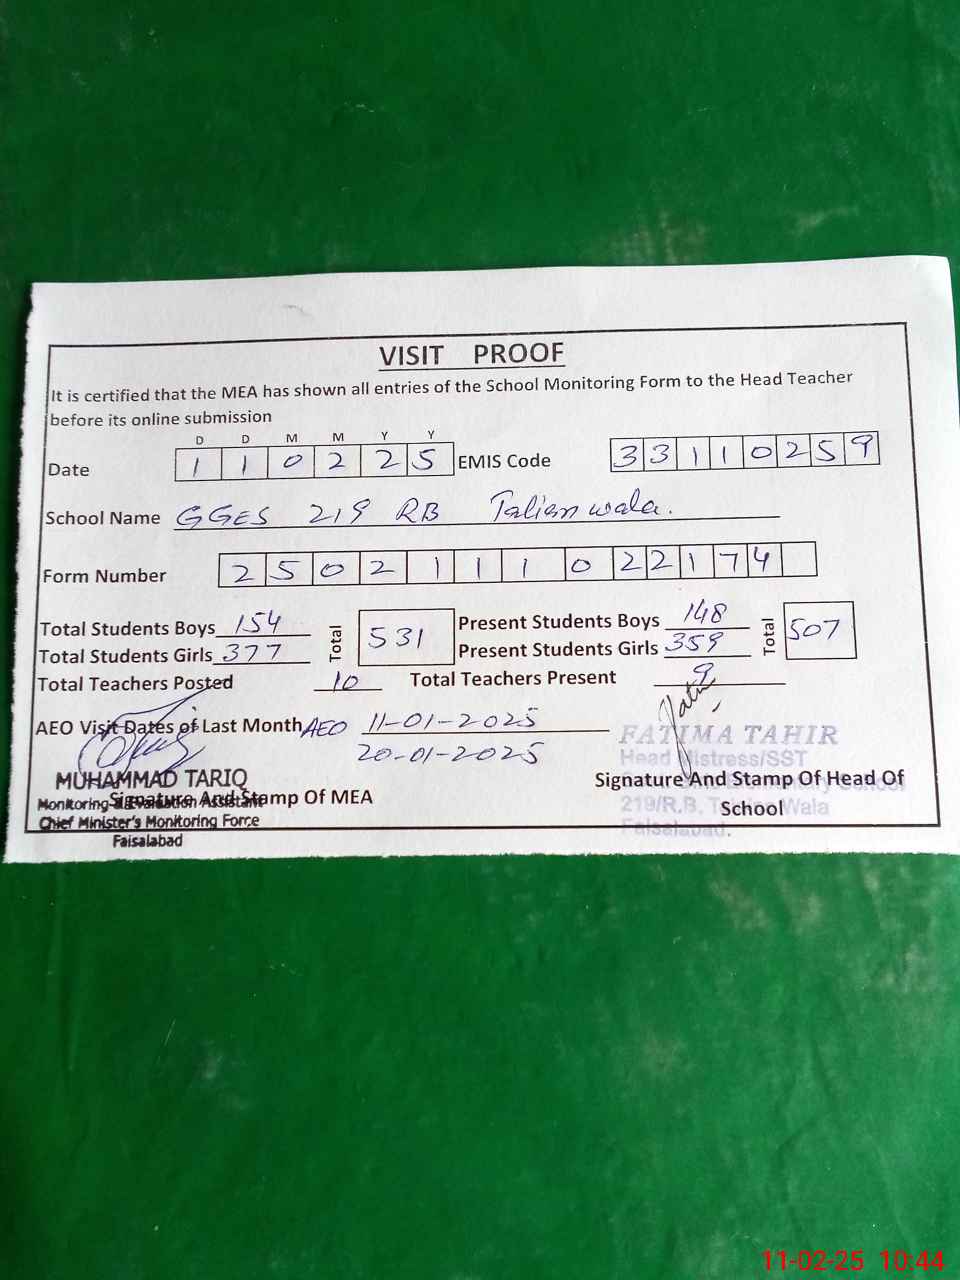 VISIT PROOF
It is certified that the MEA has shown all entries of the School Monitoring Form to the Head Teacher
before its online submission
D D M M Y Y
Date 1 1 0 2 2 5 EMIS Code 3 3 1 1 0 2 5 9
School Name GGES 219 RB Talian wala.
Form Number 2 5 0 2 1 1 1 0 2 2 1 7 4
Total Students Boys 154 Total 531 Present Students Boys 148 Total 507
Total Students Girls 377 Present Students Girls 359
Total Teachers Posted 10 Total Teachers Present 9
AEO Visit Dates of Last Month AEO 11-01-2025
20-01-2025
FATIMA TAHIR
Head Mistress/SST
MUHAMMAD TARIQ
Signature And Stamp Of MEA
Monitoring & Evaluation Assistant
Chief Minister's Monitoring Force
Faisalabad
Signature And Stamp Of Head Of
School
Elementary School
219/R.B. Wala
Faisalabad.
11-02-25 10:44